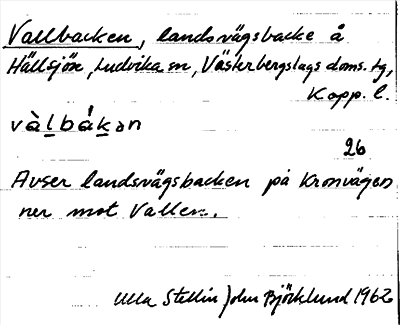 Vallbacken, landsvägsbacke å
Hällsjön, Ludvika sn, Västerbergslags doms. tg,
Kopp. l.
và̀lbákən
26
Avser landsvägsbacken på Kronvägen
ner mot Vallen.
Ulla Stellin John Björklund 1962